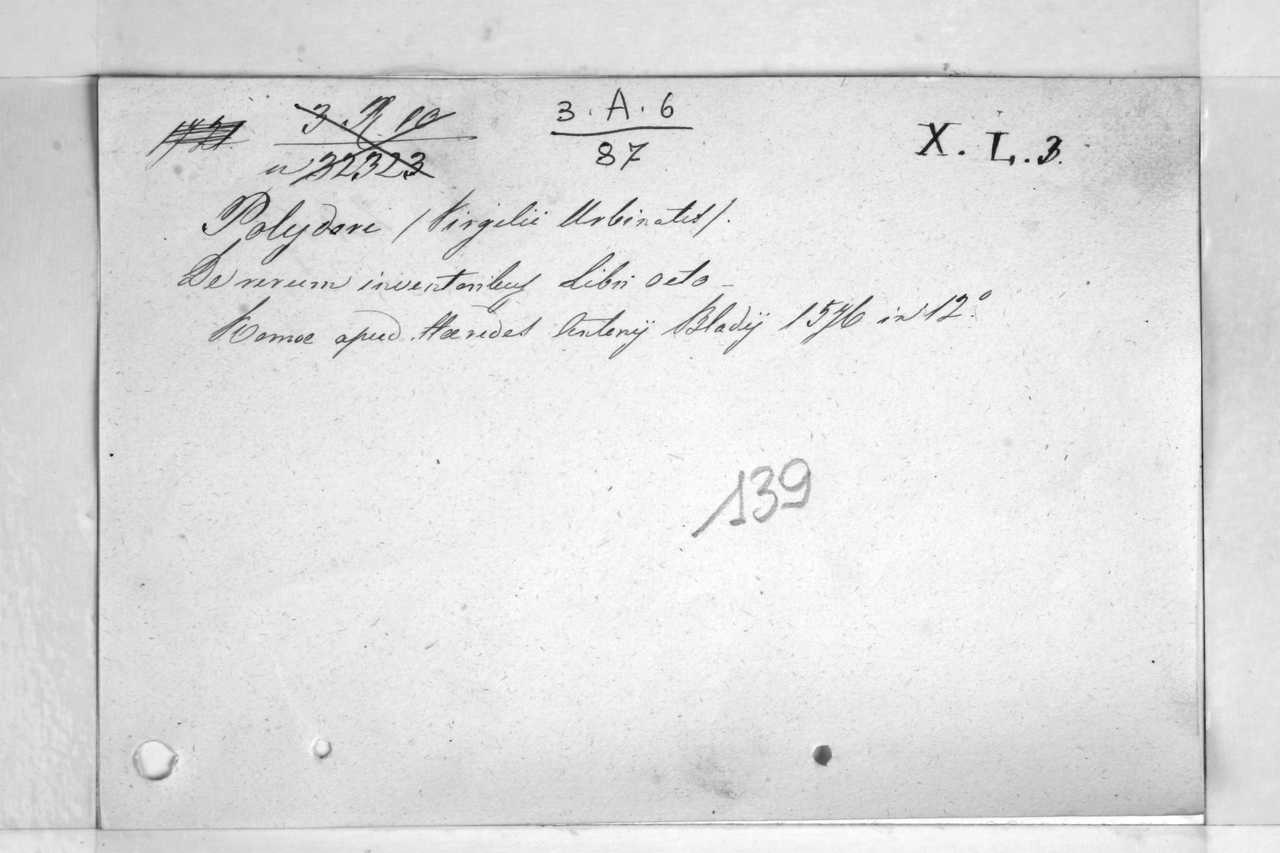 3. R. 10 3. A. 6 X. L. 3.
n 32323 87
Polydori (Virgilii Urbinatis).
De rerum inventoribus Libri octo -
Romae apud Haeredes Antonij Bladij 1576 in 12°.
139